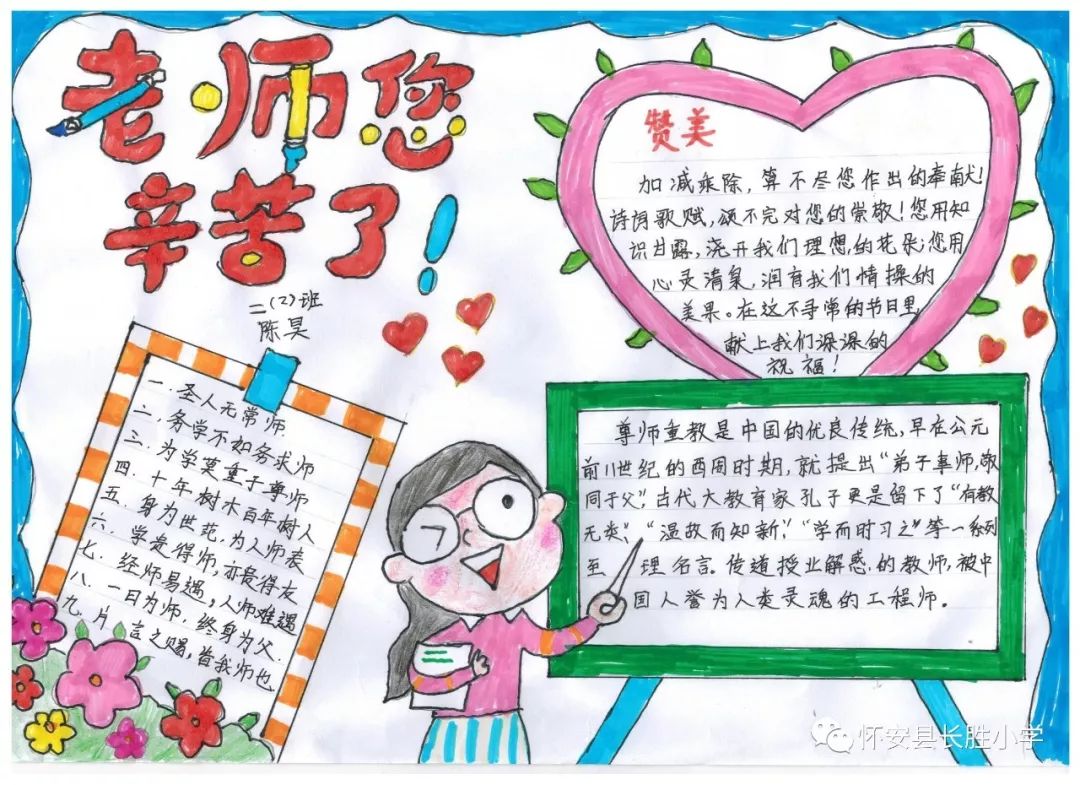 老师您
辛苦了!
二(2)班
陈昊
赞美
加减乘除，算不尽您作出的奉献!
诗词歌赋，颂不完对您的崇敬!您用知
识甘露，浇开我们理想的花朵;您用
心灵清泉，润育我们情操的
美果。在这不寻常的节日里，
献上我们深深的
祝福!
一.圣人无常师.
二.务学不如务求师
三.为学莫重于尊师
四.十年树木百年树人
五.身为世范，为人师表
六.学贵得师，亦贵得友
七.经师易遇，人师难遇
八.一日为师，终身为父.
九.片言之赐，皆我师也
尊师重教是中国的优良传统，早在公元
前11世纪的西周时期，就提出“弟子事师，敬
同于父”，古代大教育家孔子更是留下了“有教
无类”、“温故而知新”、“学而时习之”等一系列
至理名言。传道授业解惑.的教师，被中
国人誉为人类灵魂的工程师。
怀安县长胜小学